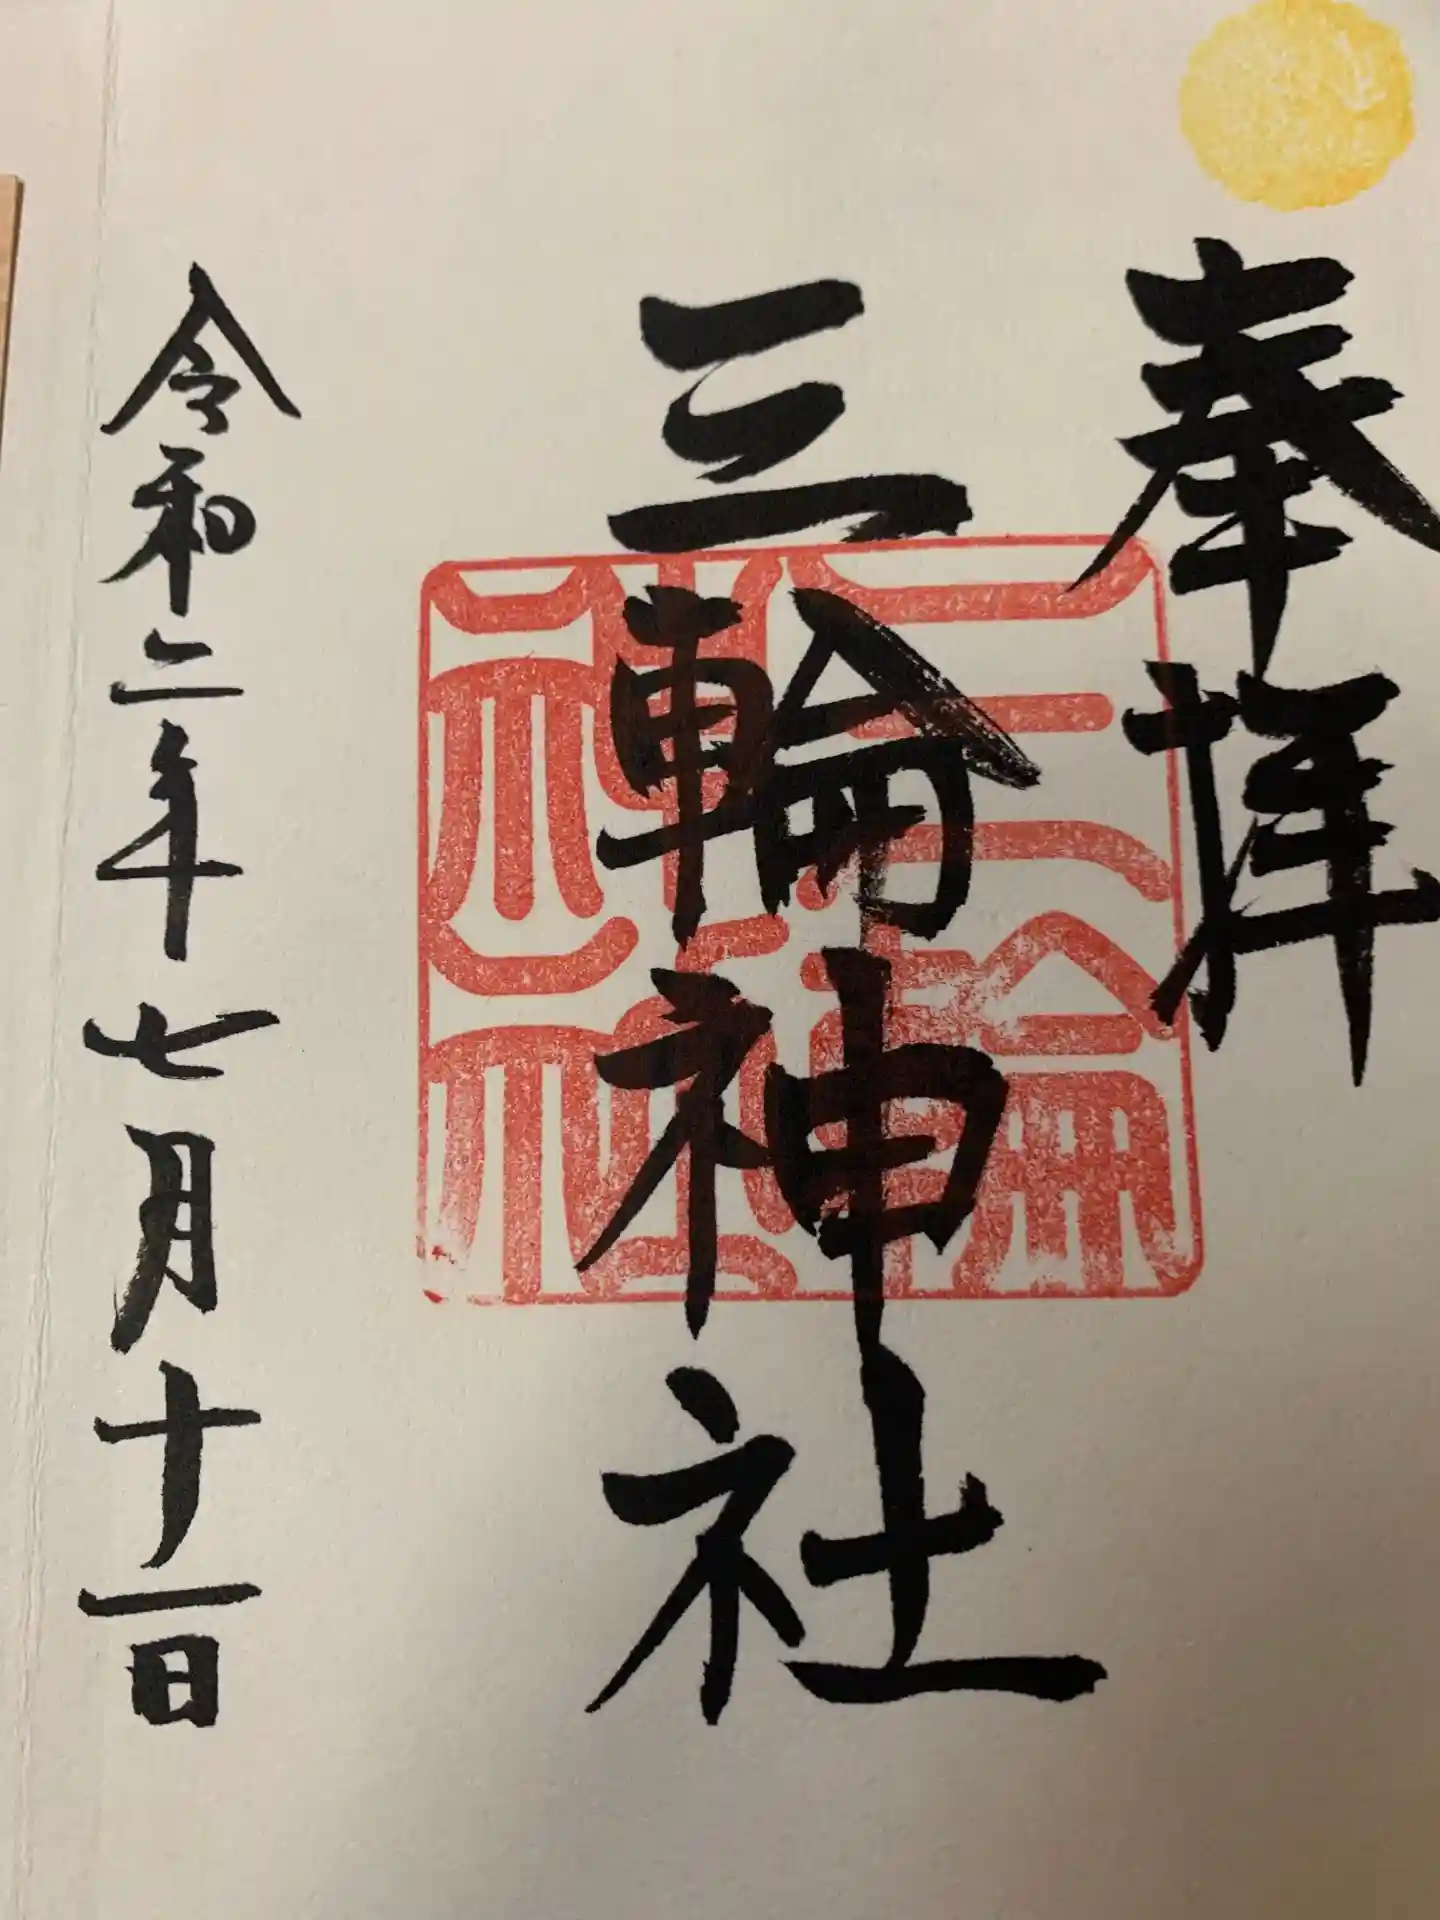 奉拝
三輪神社
三輪
神社
令和二年七月十一日